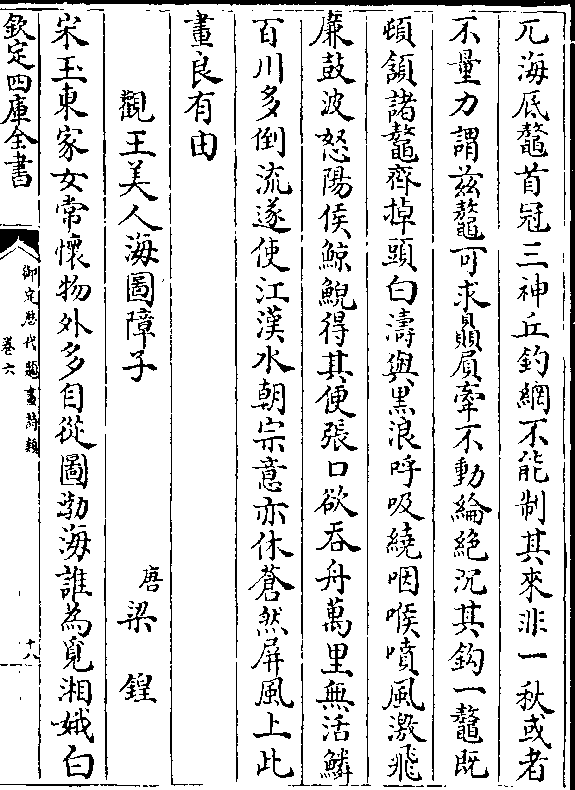 兀海底鼇首冠三神丘釣網不能制其來非一秋或者
不量力謂茲鼇可求贔屓牽不動綸絶沉其鈎一鼇既
頓頷諸鼇齊掉頭白濤與黒浪呼吸繞咽喉噴風激飛
廉鼓波怒陽侯鯨鯢得其便張口欲吞舟萬里無活鱗
百川多倒流遂使江漢水朝宗意亦休蒼然屏風上此
畫良有由
觀王美人海圖障子
唐梁鍠
宋玉東家女常懷物外多自從圖勃海誰為覓湘娥白
欽定四庫全書
御定歴代題畫詩類
卷六
十八